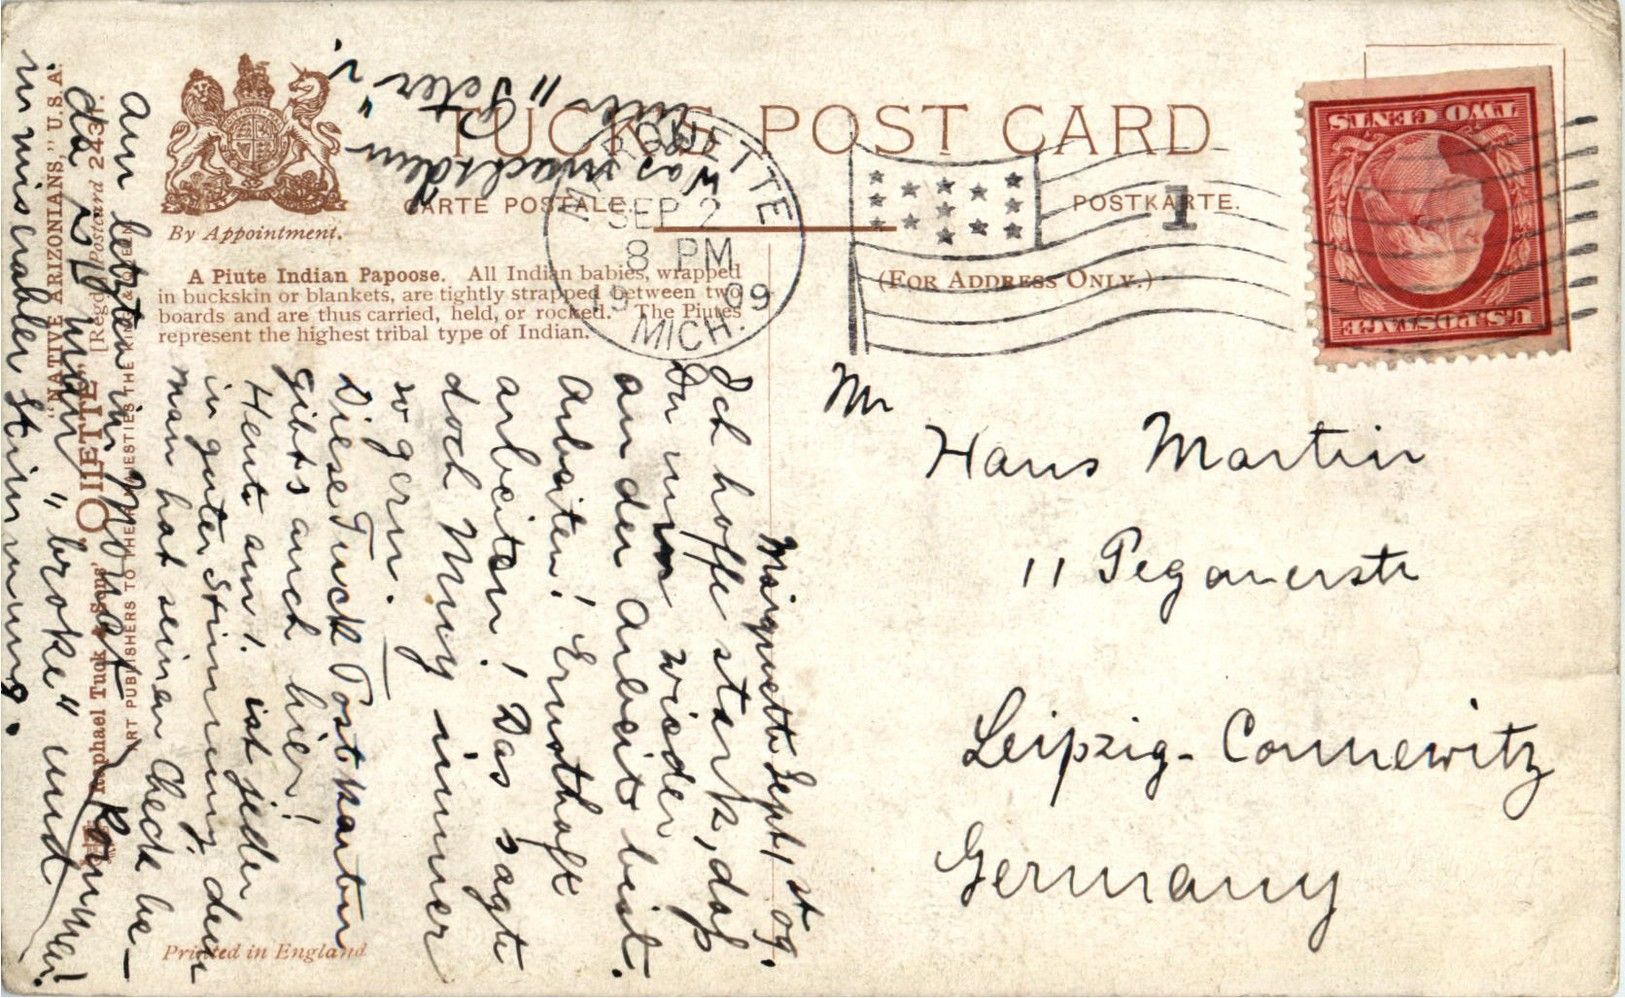 TUCK'S POST CARD
CARTE POSTALE.
POSTKARTE.
By Appointment.
(FOR ADDRESS ONLY.)
A Piute Indian Papoose. All Indian babies, wrapped
in buckskin or blankets, are tightly strapped between two
boards and are thus carried, held, or rocked. The Piutes
represent the highest tribal type of Indian.
MARQUETTE
SEP 2
8 PM
1909
MICH.
1
U.S. POSTAGE
TWO CENTS
Mr
Hans Martin
11 Pegauerstr
Leipzig-Connewitz
Germany
Marquette Sept, 1st 09.
Ich hoffe stark, daß
Du nun wieder
an der Arbeit bist.
Arbeiten! Ernsthaft
arbeiten! Das sagte
doch Muy immer
so gern.
Diese Tuck Postkarten
gibts auch hier!
Heute am 1. ist jeder
in guter Stimmung, denn
man hat seinen Check be-
kommen!
Am letzten im Monat
da ist man "broke" und
in miserabler Stimmung.
Was macht denn
unser "Peter"?
"NATIVE ARIZONIANS," U.S.A.
[Regd.] Postcard 2431.
"OILETTE"
Raphael Tuck & Sons'
ART PUBLISHERS TO THEIR MAJESTIES THE KING & QUEEN
Printed in England